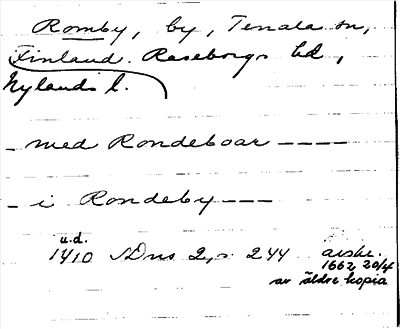 Romby, by, Tenala sn,
Finland. Raseborgs hd,
Nylands l.
- med Rondeboar ----
- i Rondeby ---
u.d.
1410 SDns 2, s. 244 avskr.
1662 20/4
av äldre kopia